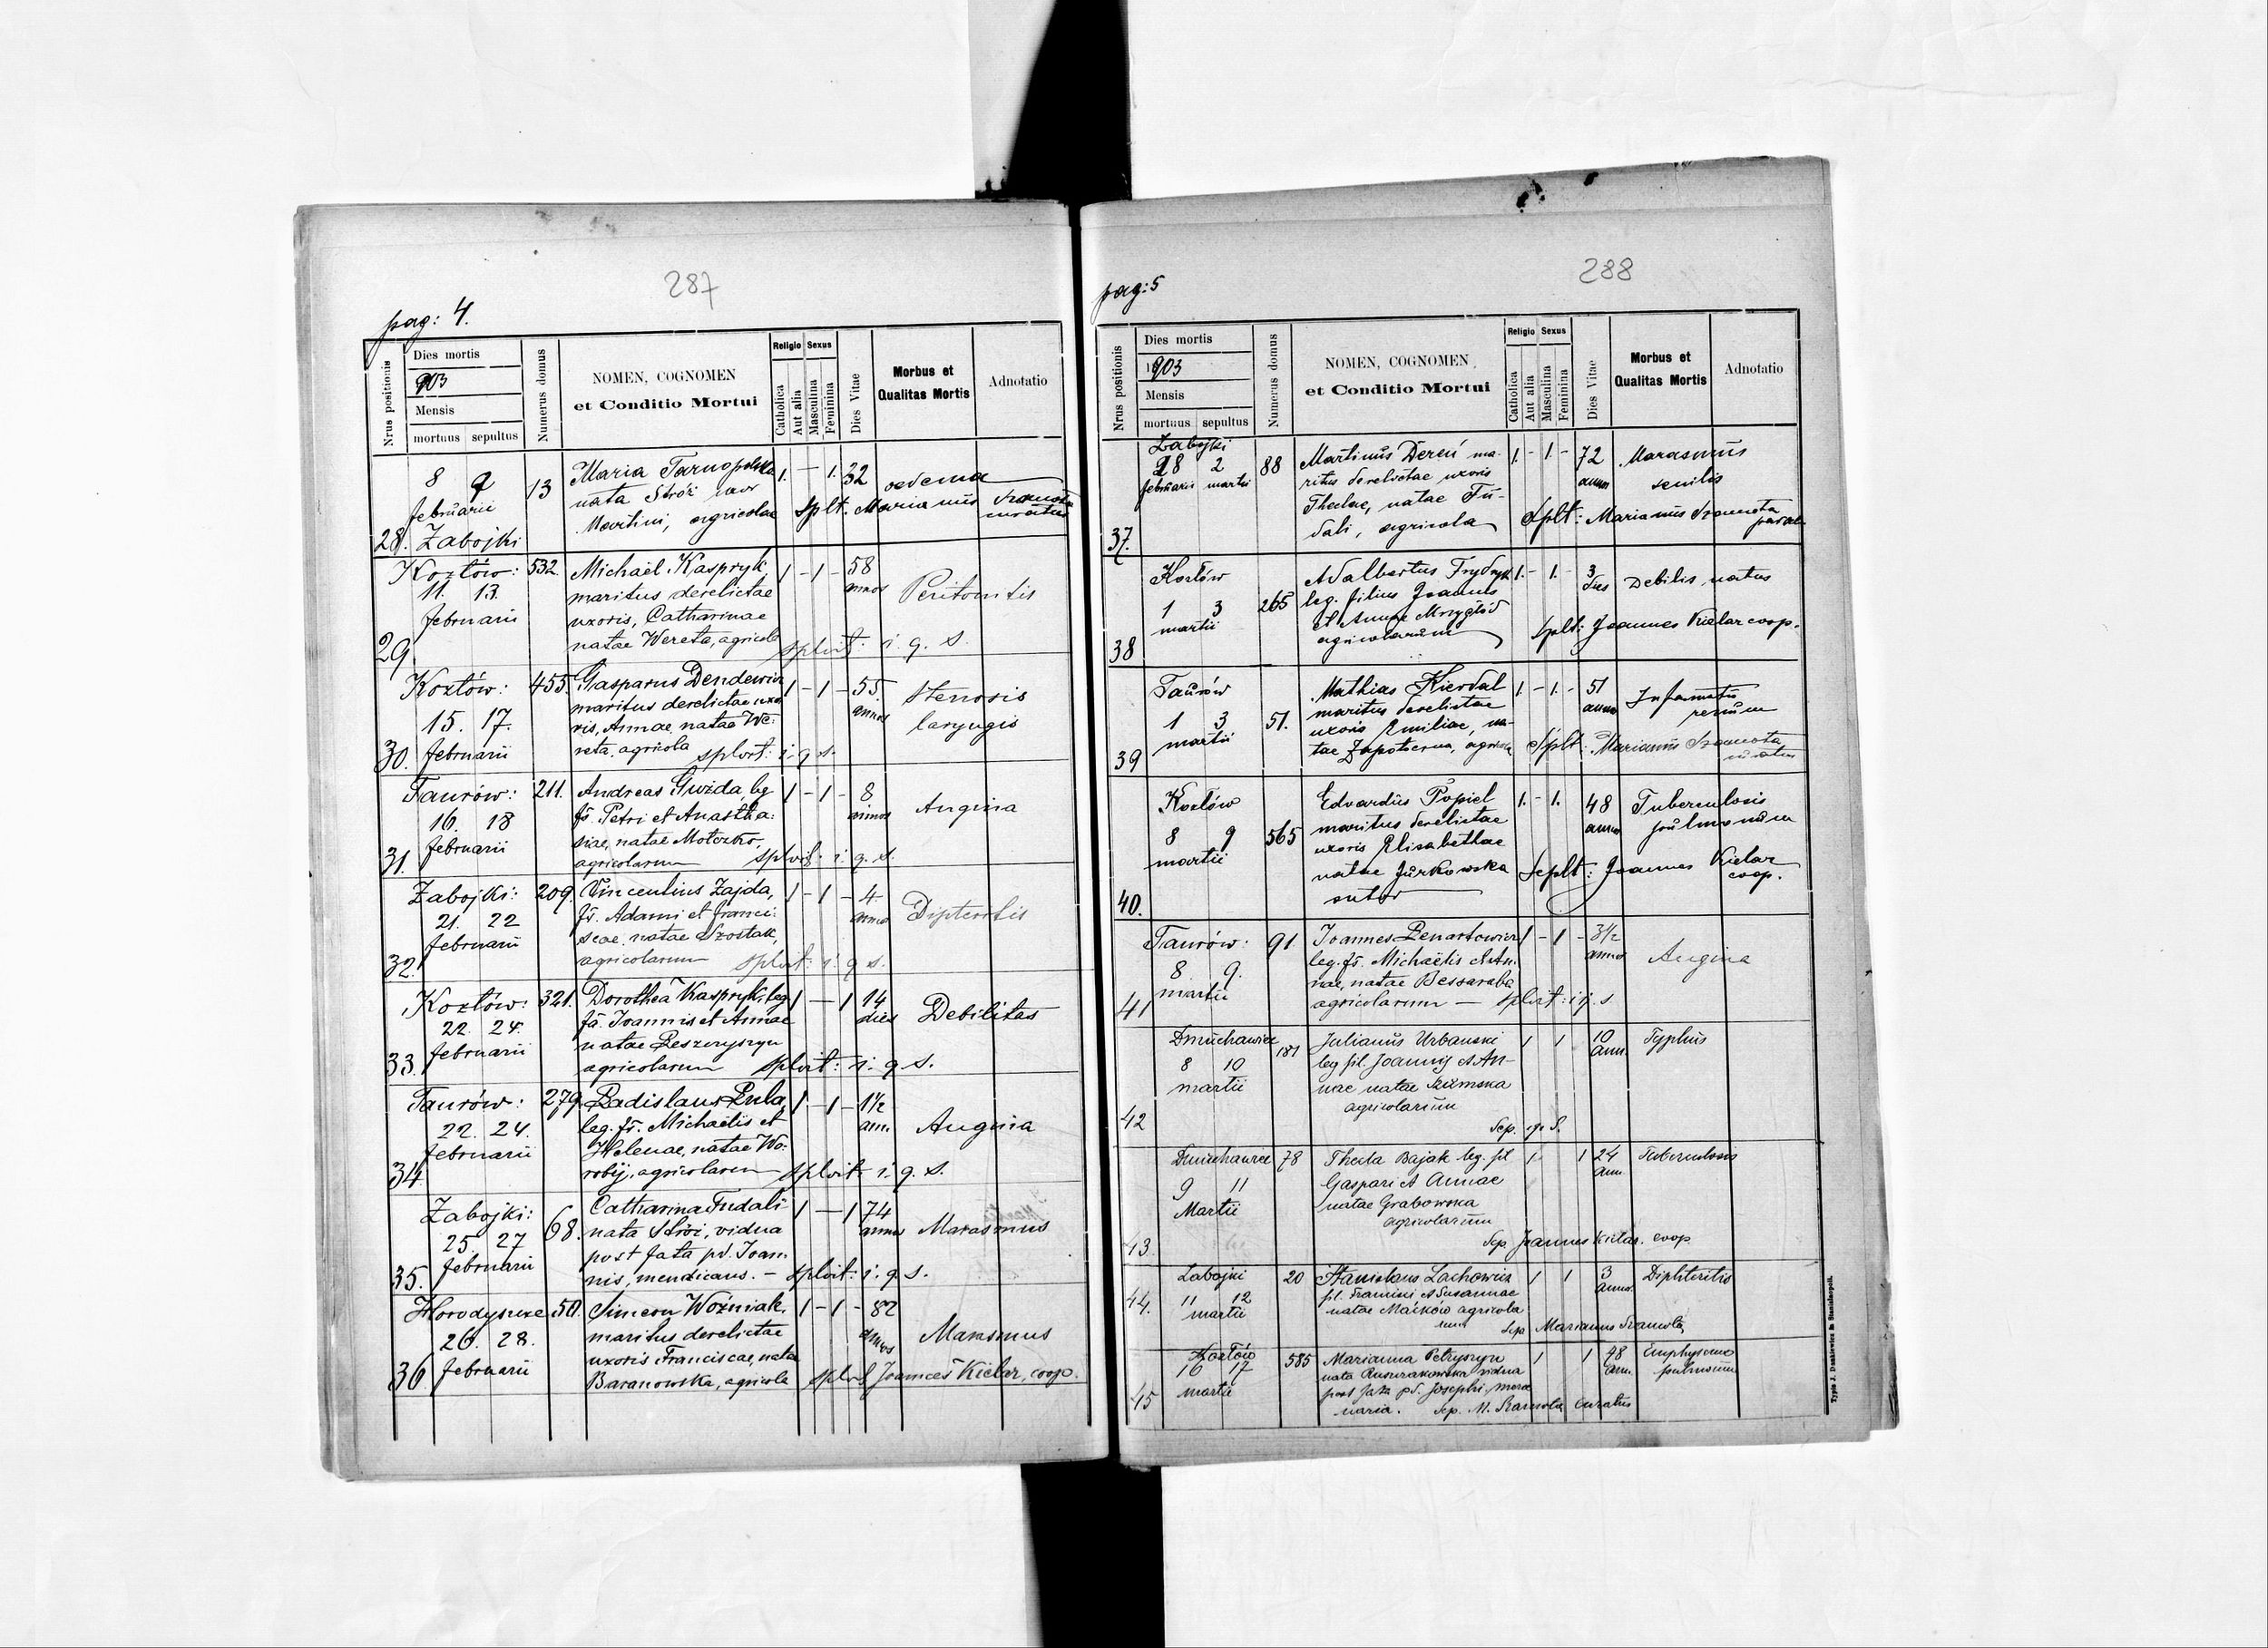 287
pag: 4.
Nrus positionis
Dies mortis
903
Mensis
mortuus sepultus
Numerus domus
NOMEN, COGNOMEN
et Conditio Mortui
Religio Sexus
Catholica
Aut alia
Masculina
Feminina
Dies Vitae
Morbus et
Qualitas Mortis
Adnotatio
8 9 13 Maria Tarnopolska 1. — 1. 32 oedema
februarii nata Stróż uxor
Martini, agricolae Splt. Marianus
28. Zabojki
Kozłów: 532. Michaël Kaspryk 1 - 1 - 58
11. 13. maritus derelictae annos Peritonitis
februarii uxoris, Catharinae
29. natae Wereta, agricola splvit: i. q. s.
Kozłów: 455. Gasparus Dendewicz 1 - 1 - 55. Stenosis
maritus derelictae uxo annos
15. 17. ris, Annae, natae We: laryngis
30. februarii reta. agricola splvit: i. q. s.
Taurów: 211. Andreas Gwizda, leg 1 - 1 - 8
16. 18 fs. Petri et Anastha: annos Angina
februarii siae, natae
31. agricolarum splvit: i. q. s.
Zabojki: 209. Vincentius Zajda, 1 - 1 - 4
21. 22 fs. Adami et Franci: annos Dipteritis
februarii scae, natae Szostak,
32. agricolarum splvit: i. q. s.
Kozłów: 321. Dorothea Kaspryk, leg 1 — 1 14
22. 24. fa. Joannis et Annae dies Debilitas
februarii natae Leszczyszyn
33. agricolarum splvit: i. q. s.
Taurów: 279. Ladislaus Lula, 1 - 1 - 1½
22. 24. leg. fs. Michaëlis et ann. Angina
februarii Helenae, natae Wo:
34. robij, agricolarum splvit: i. q. s.
Zabojki: 68. Catharina Fudali 1 — 1 74
25. 27 nata Stróż, vidua annos Marasmus
februarii post fata pd. Joan:
35. nis, mendicans. — splvit: i. q. s.
Horodyszcze 50. Simeon Woźniak, 1 - 1 - 82
26. 28. maritus derelictae annos Marasmus
uxoris Franciscae, nata
36. februarii Baranowska, agricola splvit Joannes Kielar, coop.
288
pag: 5
Nrus positionis
Dies mortis
1903
Mensis
mortuus sepultus
Numerus domus
NOMEN, COGNOMEN
et Conditio Mortui
Religio Sexus
Catholica
Aut alia
Masculina
Feminina
Dies Vitae
Morbus et
Qualitas Mortis
Adnotatio
Zabojki
28 2 88 Martinus Dereń ma- 1. - 1. - 72 Marasmus
februarii martii ritus derelictae uxoris annos senilis
Theclae, natae Fu-
dali, agricola Splt: Marianus Szamota
37.
Kozłów Adalbertus Frydryk 1. - 1. - 3 Debilis natus
1 3 265 leg. filius Joannis dies
martii et Annae Mrzygłód
38 agricolarum Splt: Joannes Kielar coop.
Taurów Mathias Kierdal 1. - 1. - 51
1 3 51. maritus derelictae annos renum
martii uxoris Emiliae, na-
39 tae Zapotoczna, agricola Splt: Marianus Szamota
Kozłów Edvardus Popiel 1. - 1. 48 Tuberculosis
8 9 565 maritus derelictae annos pulmonum
martii uxoris Elisabethae
natae Jurkowska Seplt: Joannes Kielar
40. sutor coop.
Taurów: 91 Joannes Lenartowicz 1 - 1 - 3½
8. 9. leg. fs. Michaëlis et An: annos Angina
martii nae, natae Bessaraba
41 agricolarum — splvit: i q. s.
Dmuchawiec 181 Julianus Urbanski 1 1 10 Typhus
8 10 leg fil. Joannis et An- ann.
martii nae natae Szumska
agricolarum
42 Sep. q. S.
Dmuchawiec 78 Thecla Bajak leg. fil 1 1 24 Tuberculosis
9 11 Gaspari et Annae ann.
Martii natae Grabowska
agricolarum
43. Sep. Joannes Kielar. coop.
Zabojki 20 Stanislaus Lachowicz 1 1 3 Diphteritis
11 12 fil. Francisci et Susannae annos.
44. martii natae Maćków agricola
rum Sep. Marianus Szamota
Kozłów 585 Marianna Petryszyn 1 1 48 Emphysema
16 17 nata vidua ann. pulmonum
martii post fata pd. Josephi, merce
45 naria. Sep. M. Szamota curatus
Typis J. Dankiewicz in Stanislaopoli.